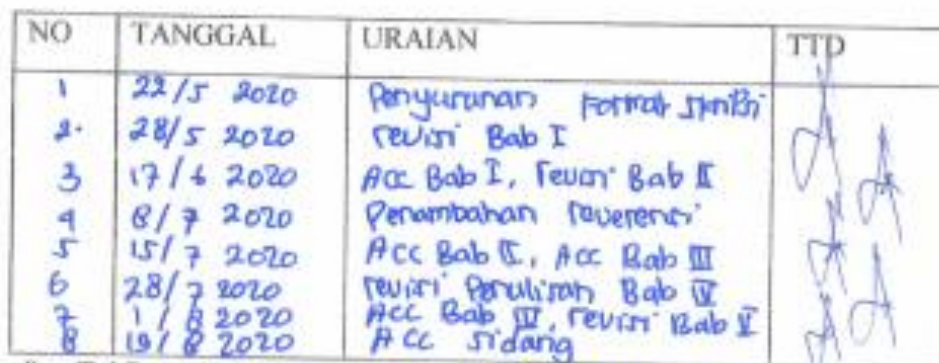 NO TANGGAL URAIAN TTD
1 22/5 2020 Penyusunan Format Skripsi
2. 28/5 2020 revisi Bab I
3 17/6 2020 Acc Bab I, revisi Bab II
4 8/7 2020 Penambahan reverensi
5 15/7 2020 Acc Bab II, Acc Bab III
6 28/7 2020 revisi Penulisan Bab IV
7 1/8 2020 Acc Bab IV, revisi Bab V
8 19/8 2020 Acc sidang